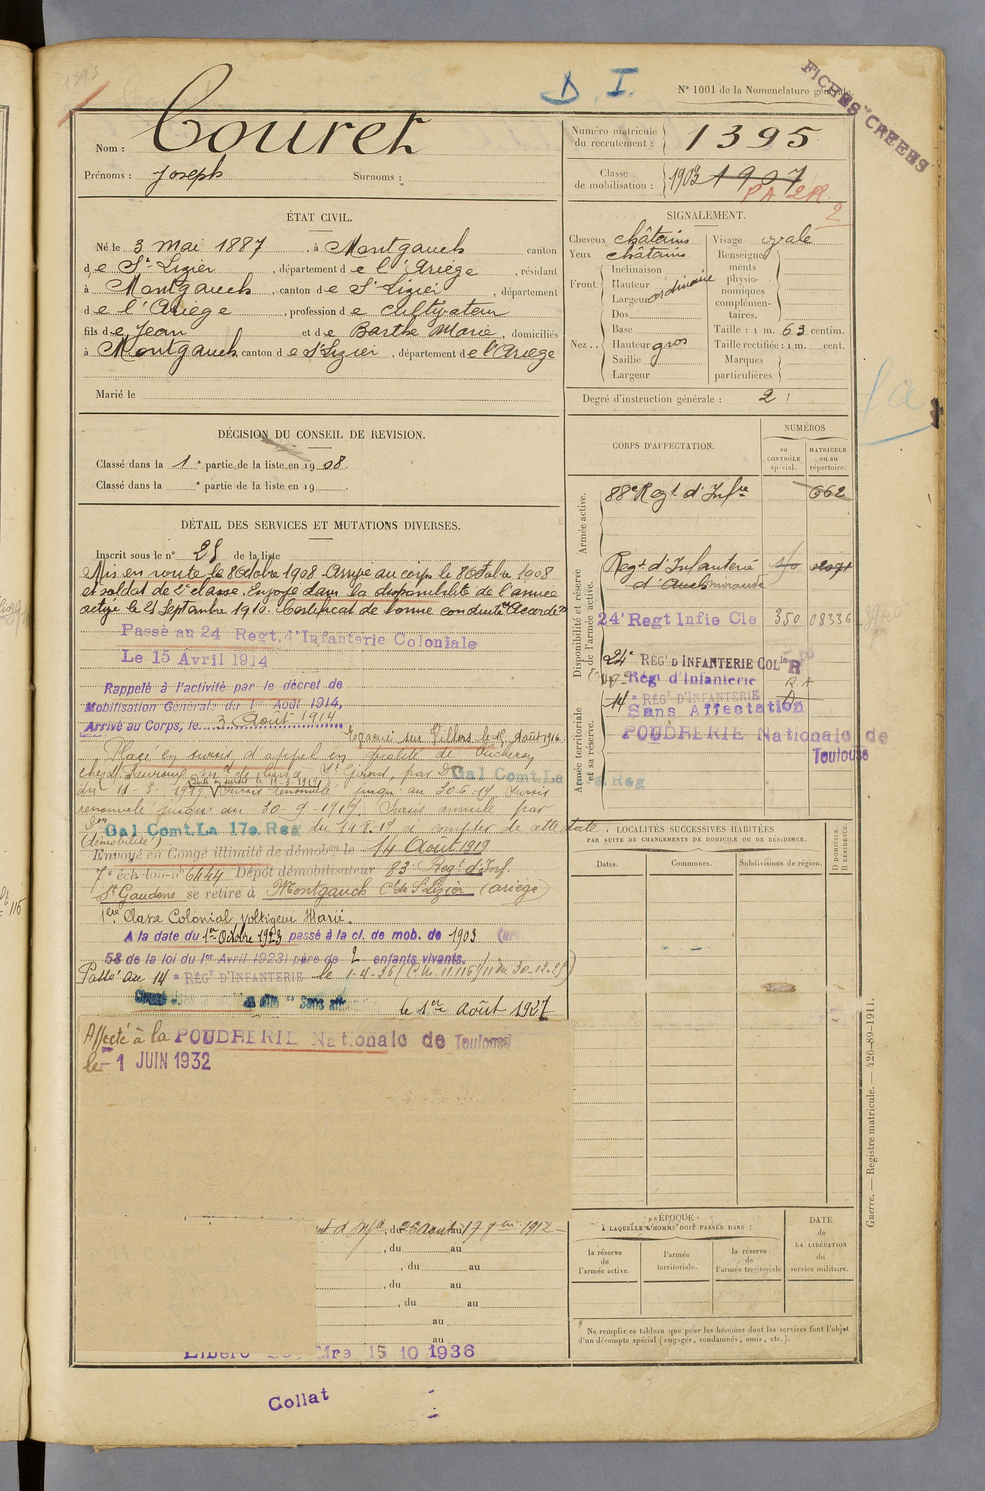 D I.
N° 1001 de la Nomenclature générale.
FICHES CREEES
Nom : Couret
Prénoms : Joseph Surnoms :
Numéro matricule du recrutement : 1395
Classe de mobilisation : 1903 1907
PA 2R
2
ÉTAT CIVIL.
Né le 3 mai 1887, à Montgauch canton
de St Lizier, département de l'Ariège, résidant
à Montgauch, canton de St Lizier, département
de l'Ariège, profession de cultivateur
fils de Jean et de Barthe Marie, domiciliés
à Montgauch canton de St Lizier, département de l'Ariège
Marié le
SIGNALEMENT.
Cheveux châtains
Yeux châtains
Front. Inclinaison
Hauteur ordinaire
Largeur
Nez.. Dos
Base
Hauteur gros
Saillie
Largeur
Visage ovale
Renseignements physionomiques complémentaires.
Taille : 1 m. 63 centim.
Taille rectifiée : 1 m. cent.
Marques particulières.
Degré d'instruction générale : 2
DÉCISION DU CONSEIL DE REVISION.
Classé dans la 1e partie de la liste en 1908.
Classé dans la e partie de la liste en 19 .
CORPS D'AFFECTATION.
NUMÉROS
au CONTRÔLE spécial.
MATRICULE ou au répertoire.
Armée active.
88e Regt d'Infie 662
Disponibilité et réserve de l'armée active.
Regt d'Infanterie
d'Auch mirande
24e Regt Infie Cle 350 08336
24e RÉGt D'INFANTERIE COLle R
Régt d'Infanterie R A
Armée territoriale et sa réserve.
14e RÉGt D'INFANTERIE
Sans Affectation
POUDRERIE Nationale de
Toulouse
DÉTAIL DES SERVICES ET MUTATIONS DIVERSES.
Inscrit sous le n° 25 de la liste
Mis en route le 8 Octobre 1908. Arrivé au corps le 8 Octobre 1908
et soldat de 2e classe. Envoyé dans la disponibilité de l'armée
active le 25 Septembre 1910. Certificat de bonne conduite Accordé
Passé au 24 Regt. d'Infanterie Coloniale
Le 15 Avril 1914
Rappelé à l'activité par le décret de
Mobilisation Générale du 1er Août 1914,
Arrivé au Corps, le 3 Août 1914
Août 1916
Placé en sursis d'appel en qualité de bûcheron
chez St Girons, par Don Gal Comt. La 17e Reg
du 11-3-1919 Sursis renouvelé jusqu'au 30-6-19 Sursis
renouvelé jusqu'au 30-9-1919. Sursis annulé par
Don Gal Comt. La 17e Reg du à compter de cette date.
(démobilisé)
Envoyé en Congé illimité de démobon le 14 Août 1919
7e échelon n° 6444 Dépôt démobilisateur 83e Regt d'Inf.
St Gaudens se retire à Montgauch Con St Lizier (Ariège)
1ère Classe Colonial, voltigeur Marié.
A la date du 1er Octobre 1923 passé à la cl. de mob. de 1903 (art
58 de la loi du 1er Avril 1923) père de 2 enfants vivants.
Passé au 14e RÉGt D'INFANTERIE le 1-4-26
Sans le 1er août 1927
Affecté à la POUDRERIE Nationale de Toulouse
le - 1 JUIN 1932
du 26 août au 17 7bre 1912
, du au
, du au
, du au
au
au
Libéré 15 10 1936
LOCALITÉS SUCCESSIVES HABITÉES
PAR SUITE DE CHANGEMENTS DE DOMICILE OU DE RÉSIDENCE.
Dates. Communes. Subdivisions de région. D DOMICILE. R RÉSIDENCE.
ÉPOQUE
À LAQUELLE L'HOMME DOIT PASSER DANS :
la réserve de l'armée active.
l'armée territoriale.
la réserve de l'armée territoriale
DATE DE LA LIBÉRATION du service militaire.
Ne remplir ce tableau que pour les hommes dont les services font l'objet
d'un décompte spécial (engagés, condamnés, omis, etc.).
Guerre. — Registre matricule. — 426-89-1911.
Collat